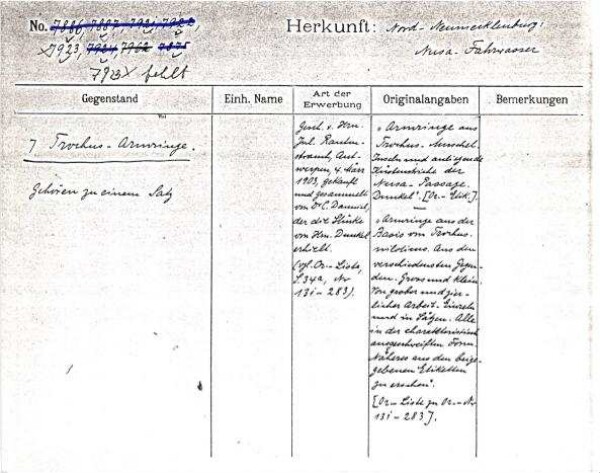 No. 7886, 7887, 7921, 7922,
7923, 7934, 7962 7875
7923 fehlt
Herkunft: Nord-Neumecklenburg:
Nusa-Fahrwasser
Gegenstand
Einh. Name
Art der
Erwerbung
Originalangaben
Bemerkungen
7 Trochus-Armringe.
Gehören zu einem Satz
Gesch. v. Hrn.
Jul. Rautenstrauch, Ant-
werpen, 4. März
1903, gekauft
und gesammelt
von
der die Stücke
von Hrn. Dunkel
erhielt.
(vgl. Or-Liste,
S. 34a, Nr
131-283).
"Armringe aus
Trochus-Muschel.
Inseln und anliegende
Küstenstriche der
Nusa-Passage.
Dunkel". [Or.-Etik.]
"Armringe aus der
Basis von Trochus
niloticus. Aus den
verschiedensten Gegen-
den. Gross und klein.
Von grober und zier-
licher Arbeit. Einzeln
und in Sätzen. Alle
in der charakteristisch
ausgeschweiften Form.
Näheres aus den beige-
gebenen Etiketten
zu ersehen".
[Or-Liste zu Or.-Nr
131-283].